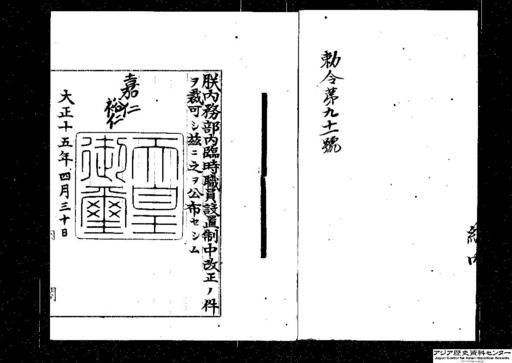 勅令第九十一號
朕内務部内臨時職員設置制中改正ノ件
ヲ裁可シ茲ニ之ヲ公布セシム
嘉仁
裕仁
天皇御璽
大正十五年四月三十日
内
閣
アジア歴史資料センター
Japan Center for Asian Historical Records